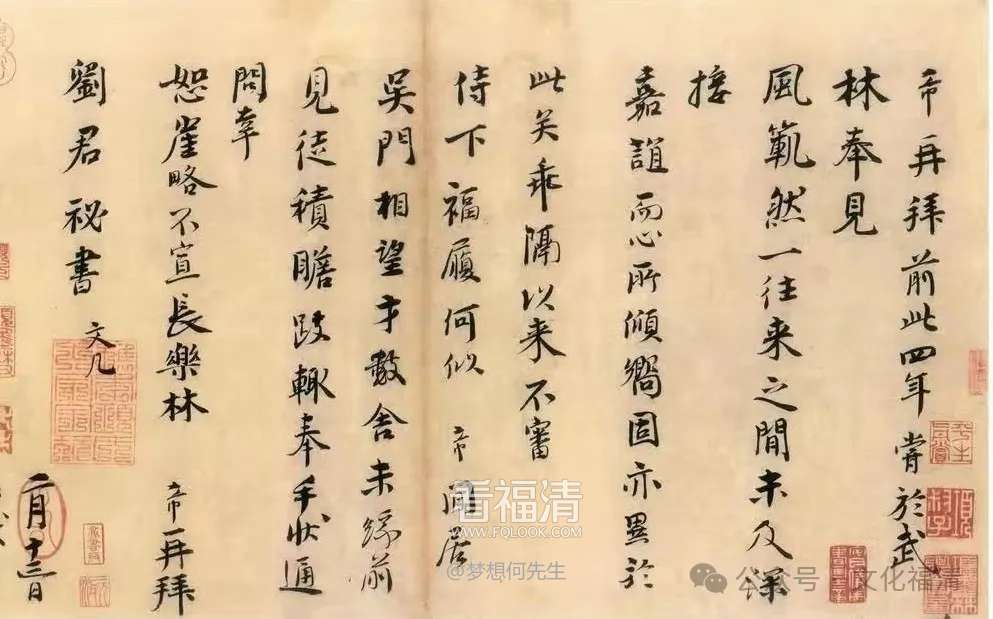 帝再拜前此四年嘗於武
林奉見
風範然一往來之間未及深
接
嘉誼而心所傾嚮固亦異於
此矣乖隔以来不審
侍下福履何似 帝閒居
吳門相望才數舍未緣前
見徒積瞻跂輒奉手狀通
問幸
恕崖略不宣長樂林 帝再拜
劉君祕書 文几
二月十三日
看福清
WWW.FQLOOK.COM
@梦想何先生
公众号·文化福清